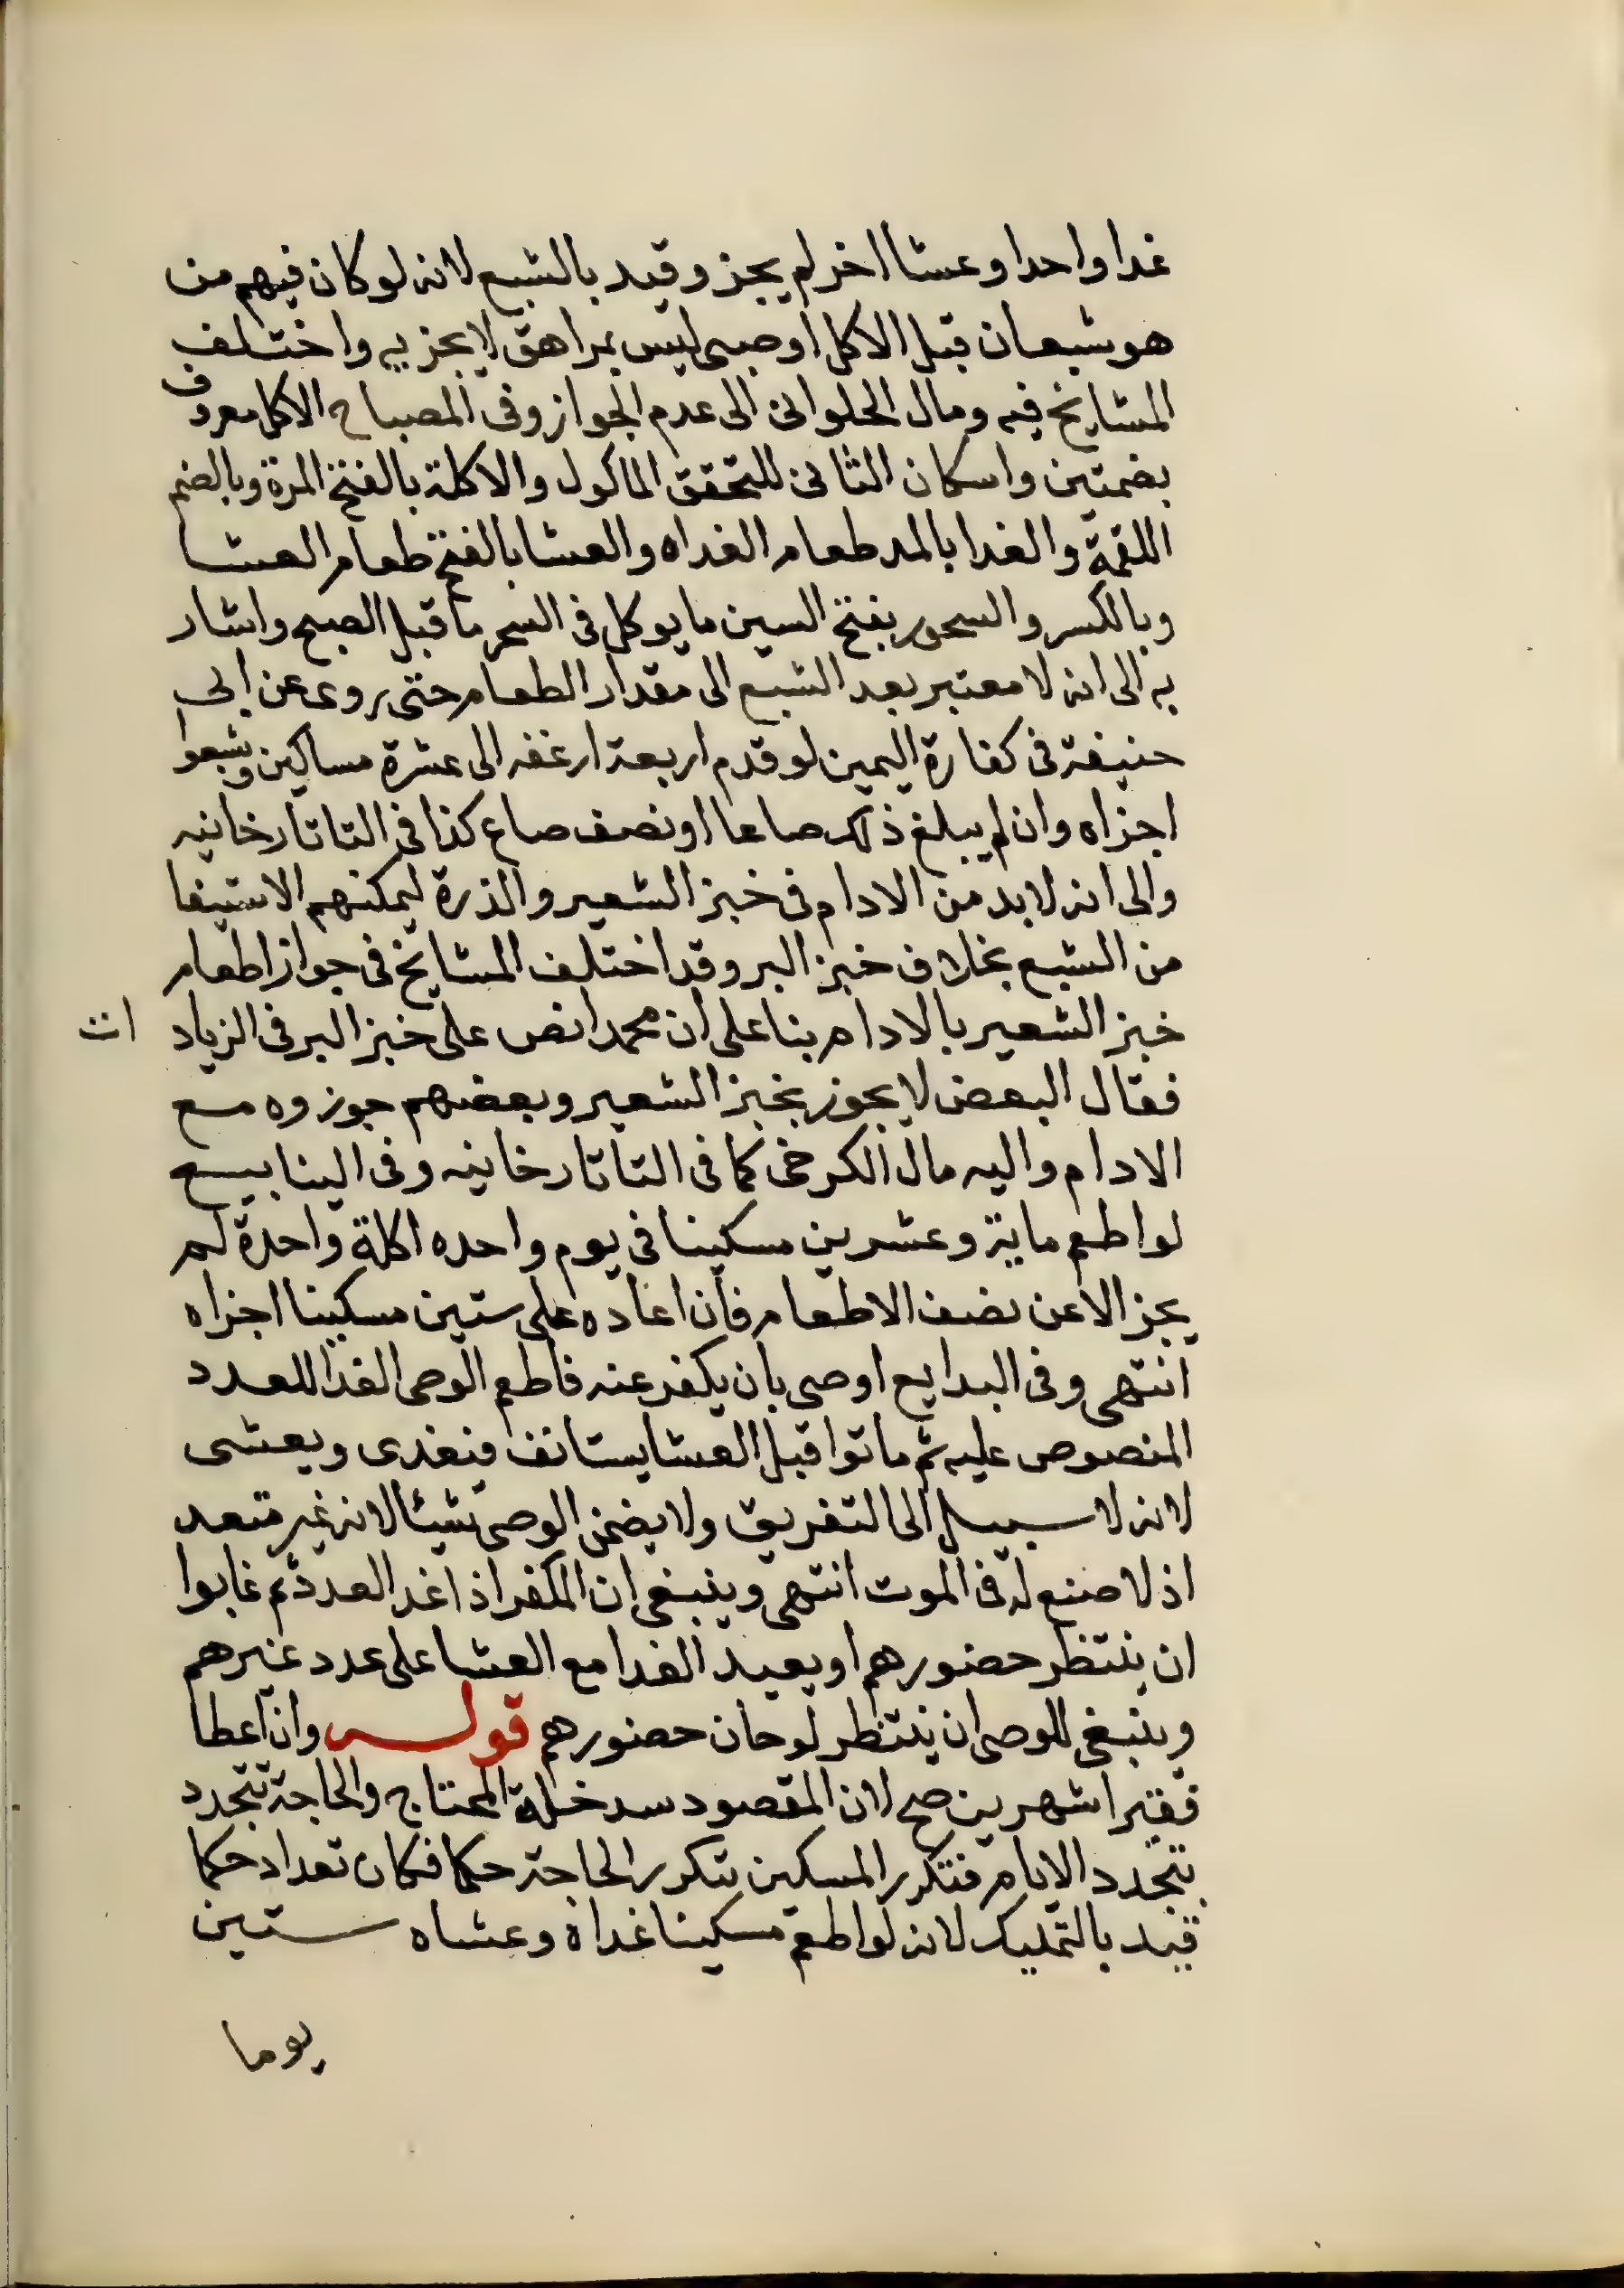 غدا واحدا وعشا اخر لم يجز وقيد بالشبع لانه لو كان فيهم من
هو شبعان قبل الاكل او صبي ليس بمراهق لا يجزيه واختلف
المشايخ فيه ومال الحلواني الى عدم الجواز وفي المصباح الاكل معروف
بضمتين واسكان الثاني للتحقق الماكول والاكلة بالفتح المرة وبالضم
اللقمة والغدا بالمد طعام الغداه والعشا بالفتح طعام العشا
وبالكسر والسحور بفتح السين ما يوكل في السحر ما قبل الصبح واشار
به الى انه لا معتبر بعد الشبع الى مقدار الطعام حتى روى عن ابي
حنيفة في كفارة اليمين لو قدم اربعة ارغفه الى عشرة مساكين وشبعوا
اجزاه وان لم يبلغ ذلك صاعا او نصف صاع كذا في التاتارخانيه
والى انه لا بد من الادام في خبز الشعير والذرة ليمكنهم الاستيفا
من الشبع بخلاف خبز البر وقد اختلف المشايخ في جواز اطعام
خبز الشعير بالادام بنا على ان محمدا نص على خبز البر في الزياد ات
فقال البعض لا يجوز بخبز الشعير وبعضهم جوزوه مع
الادام واليه مال الكرخي كما في التاتارخانيه وفي الينابيع
لو اطعم ماية وعشرين مسكينا في يوم واحده اكلة واحدة لم
يجز الا عن نصف الاطعام فان اعاده على ستين مسكينا اجزاه
انتهى وفي البدايع اوصى بان يكفر عنه فاطعم الوصى الغدا للعدد
المنصوص عليه ثم ماتوا قبل العشا يستانف فنغدى ويعشى
لانه لا سبيل الى التفريق ولا يضمن الوصي شيئا لانه غير متعد
اذ لا صنع له في الموت انتهى وينبغي ان المكفر اذا غدا العدد ثم غابوا
ان ينتظر حضورهم او يعيد الغدا مع العشا على عدد غيرهم
وينبغي للوصي ان ينتظر لو حان حضورهم قوله وان اعطا
فقيرا شهرين صح لان المقصود سد خلة المحتاج والحاجة تتجدد
بتجدد الايام فتكرر المسكين بتكرر الحاجة حكما فكان تعداد حكما
قيد بالتمليك لانه لو اطعم مسكينا غداة وعشاه ستين
يوما